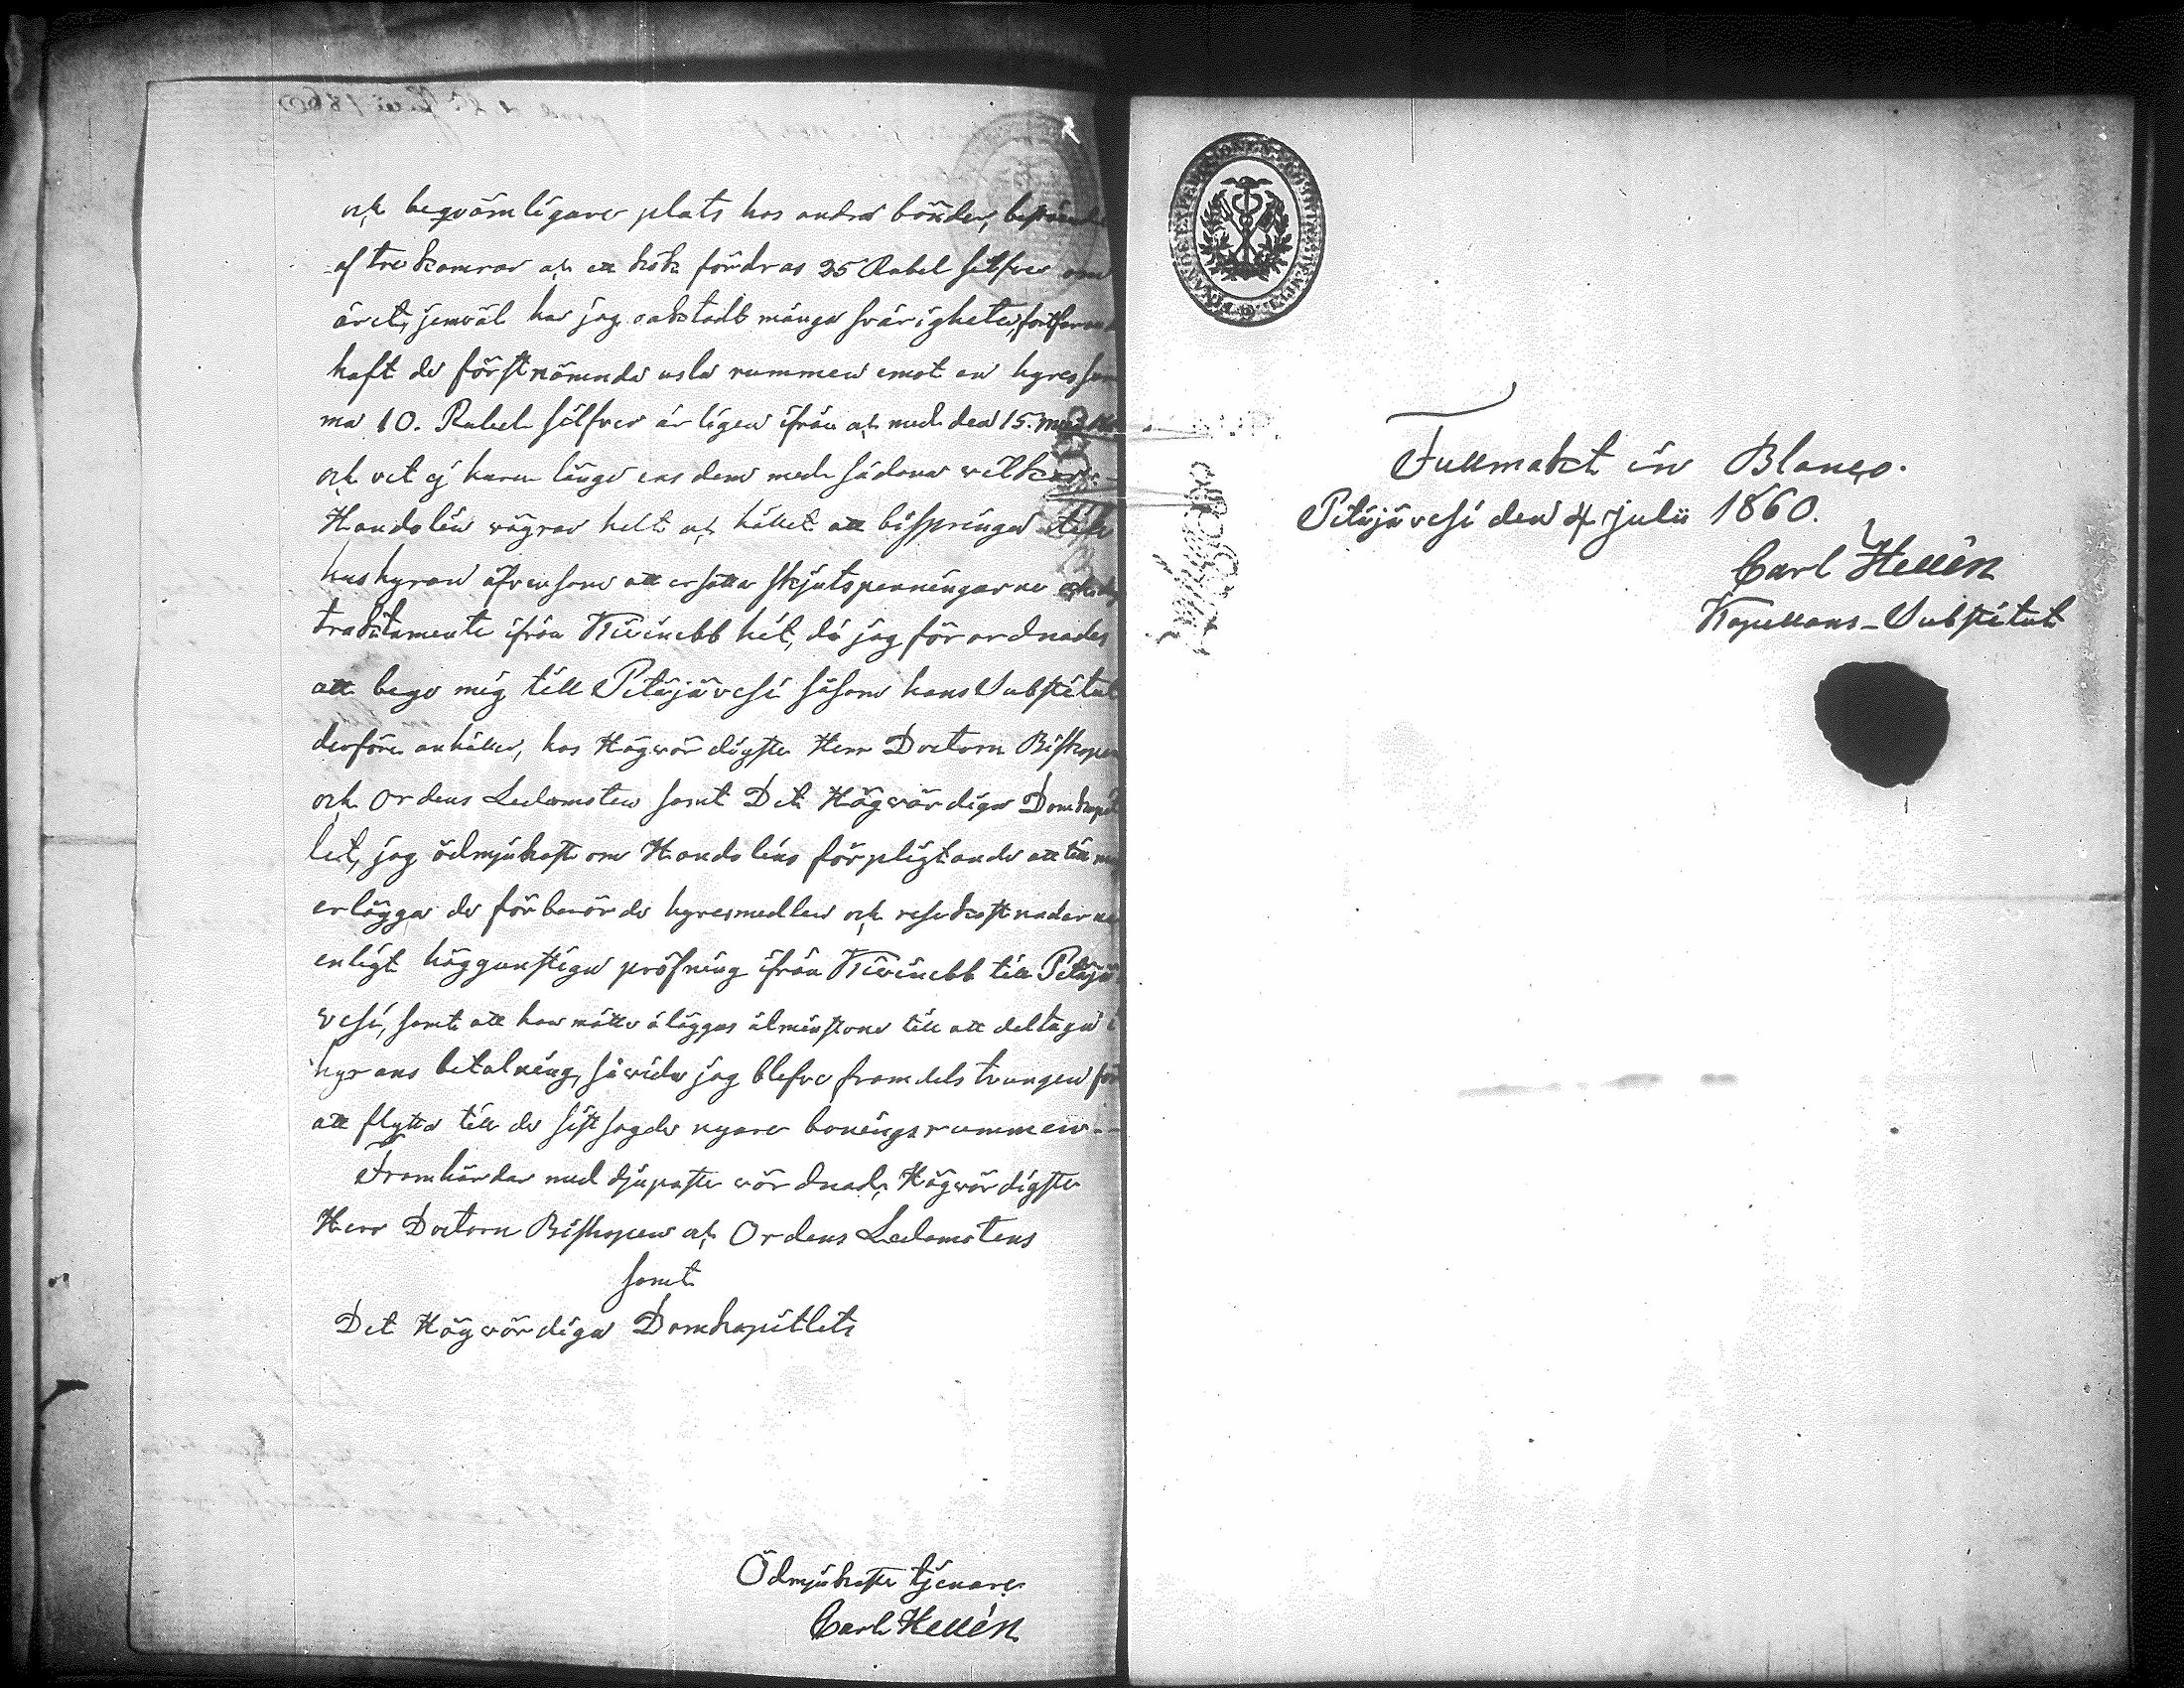 och beqvämligare plats hos andra bönder, bestående
af tre kamrar och ett kök fördras 25 Rubel silfver om
året, jemväl har jag oaktadt många svårigheter, fortfarande
haft de förstnämnda usla rummen emot en hyressum
ma 10. Rubel silfver årligen ifrån och med den 15. Maji
och vet ej huru länge ens dem med sådana vilkor.-
Handolin vägrar helt och hållet att bispringa till
hushyran äfvensom att ersätta skjutspenningarne och
traktamente ifrån Kiwinebb hit, då jag förordnades
att bege mig till Petäjävesi såsom hans Substitut
derföre anhåller, hos Högvördigste Herr Doctorn Biskopen
och Ordens Ledamoten samt Det Högvördiga Domkapit
let, jag ödmjukast om Handolins förpligtande att till mig
erlägga de förberörde hyresmedlen och resekostnaderna
enligt höggunstiga pröfning ifrån Kiwinebb till Petäjä
vesi, samt att han måtte åläggas åtminstone till att deltaga i
hyrans betalning, såvida jag blefve framdels tvungen för
att flytta till de sistsagde nyare boningsrummen.-
Framhärdar med djupaste vördnad, Högvördigste
Herr Doctorn Biskopen och Ordens Ledamotens
samt
Det Högvördiga Domkapitlets
Ödmjukaste tjenare
Carl Hellén
Fullmakt in Blanco.
Petäjävesi den 4 Julii 1860.
Carl Hellén
Kapellans-Substitut